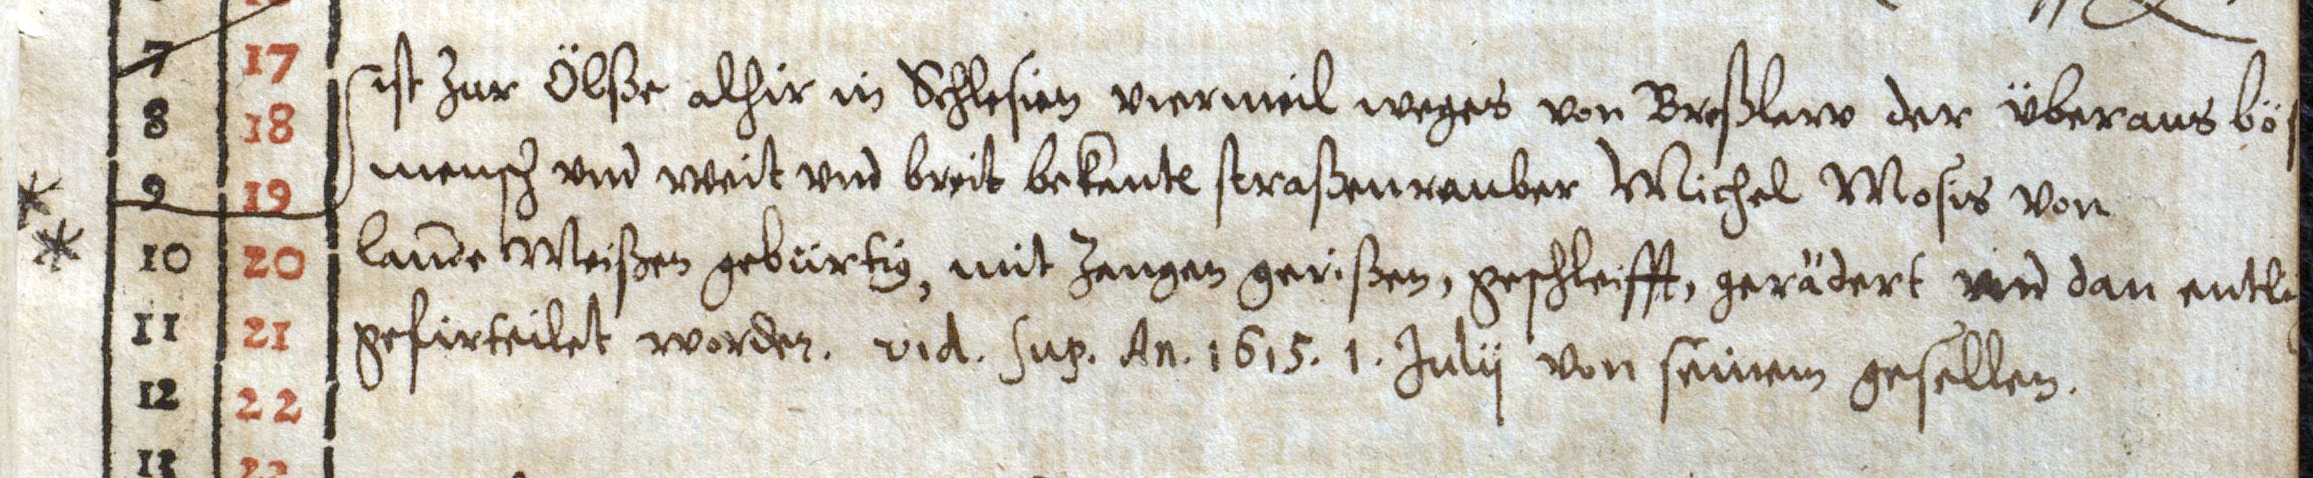 7 17
8 18
ist zur Ölße alhir in Schlesien viermeil weges von Breßlaw der überaus bös
9 19
mensch vnd weit vnd breit bekante straßenrauber Michel Mosis von
10 20
lande Meißen gebürtig, mit Zangen gerißen, geschleifft, gerädert vnd dan entli
11 21
gefirteilet worden. vid. sup. An. 1615. 1. Julij von seinem gesellen.
12 22
13 23